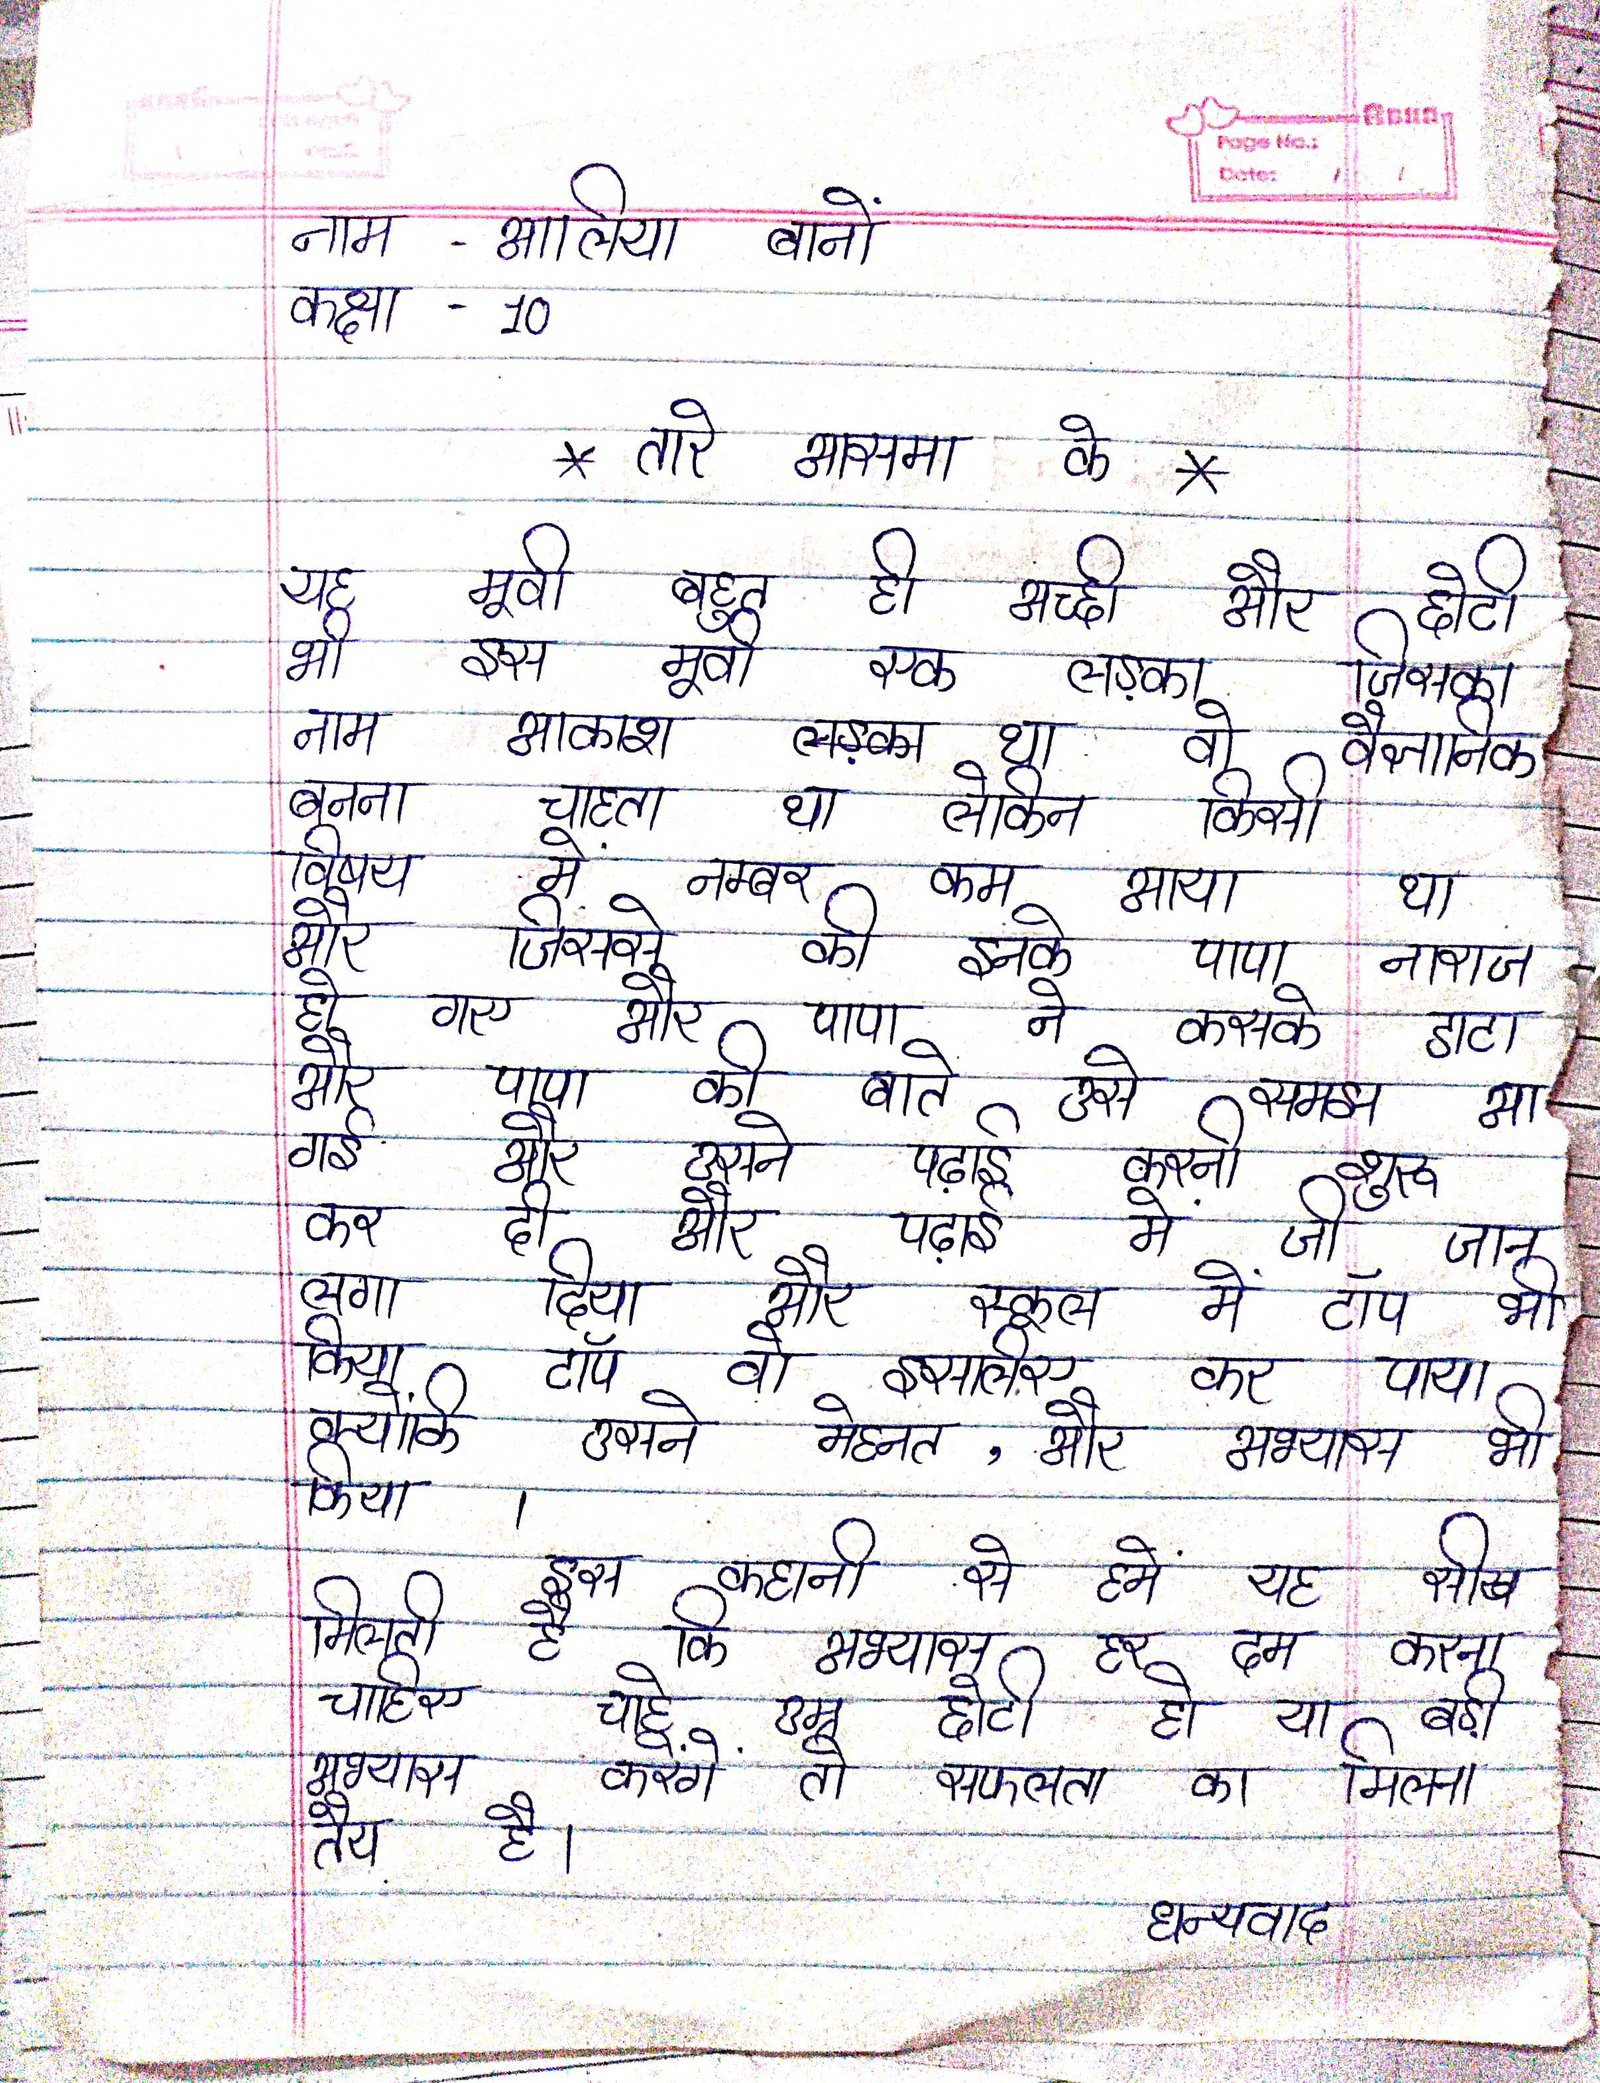 Page No.:
Date: / /
नाम - आलिया बानों
कक्षा - 10
* तारे आसमा के *
यह मूवी बहुत ही अच्छी और छोटी
भी इस मूवी एक लड़का जिसका
नाम आकाश लड़का था वो वैज्ञानिक
बनना चाहता था लेकिन किसी
विषय में नम्बर कम आया था
और जिससे की इनके पापा नाराज
हो गए और पापा ने कसके डाटा
और पापा की बाते उसे समझ आ
गई और उसने पढ़ाई करनी शुरू
कर दी और पढ़ाई में जी जान
लगा दिया और स्कूल में टॉप भी
किया टॉप वो इसलिए कर पाया
क्योंकि उसने मेहनत , और अभ्यास भी
किया ।
इस कहानी से हमें यह सीख
मिलती है कि अभ्यास हर दम करना
चाहिए चाहे उम्र छोटी हो या बड़ी
अभ्यास करेंगे तो सफलता का मिलना
तैय है।
धन्यवाद